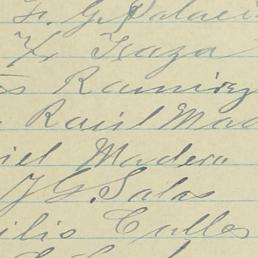 Fr. G. Palaci
Fr Isaza
s Ramirez
Raúl Mad
iel Madero
J G. Salas
ilio Calles